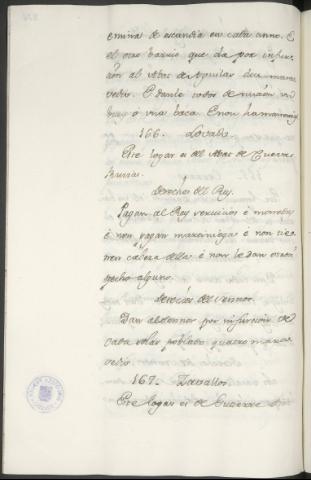 emina de escandia en cada anno. E
el otro barrio que da por infur-
cion al Abat de Aguilar diez marave-
vedis. E danle todos de nuncion un
buey o una baca. E non ha mannería
166. Lovado.
Este logar es del Abat de Cuevas
Rurras.
derechos del Rey.
Pagan al Rey servicios e monedas
e non pagan marciniega e non tie-
nen cabeza della, e non le dan otro
pecho alguno.
derechos del Sennor.
Dan al sennor por infurcion de
cada solar poblado quatro marave-
vedis.
167. Zavallos.
Este logar es de Gutierre